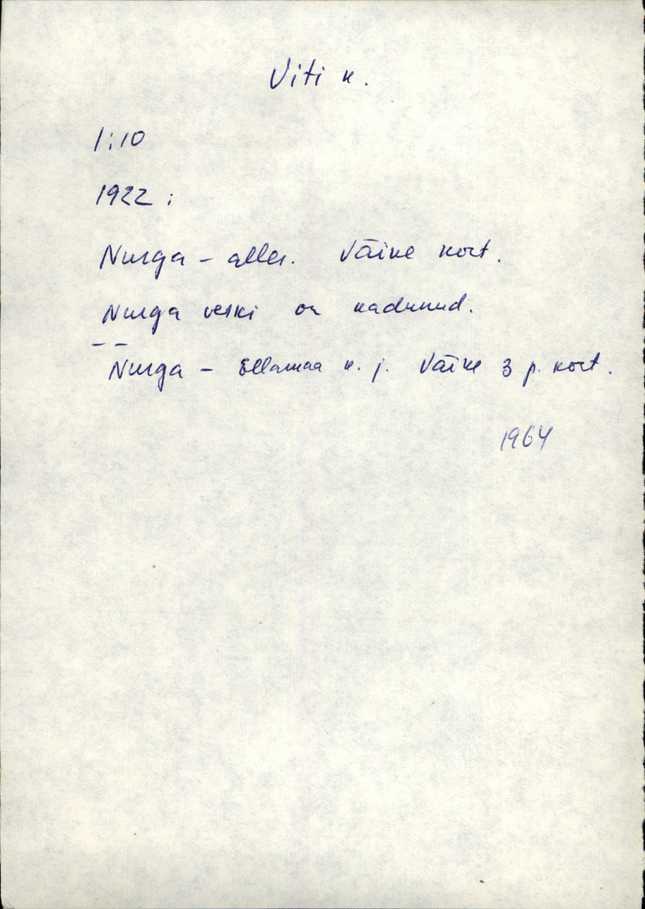 Viti k.
1:10
1922:
Nurga - alles. Väike kort.
Nurga veski on kadunud.
Nurga - Ellamaa k. j. Väike 3 p. kort.
1964